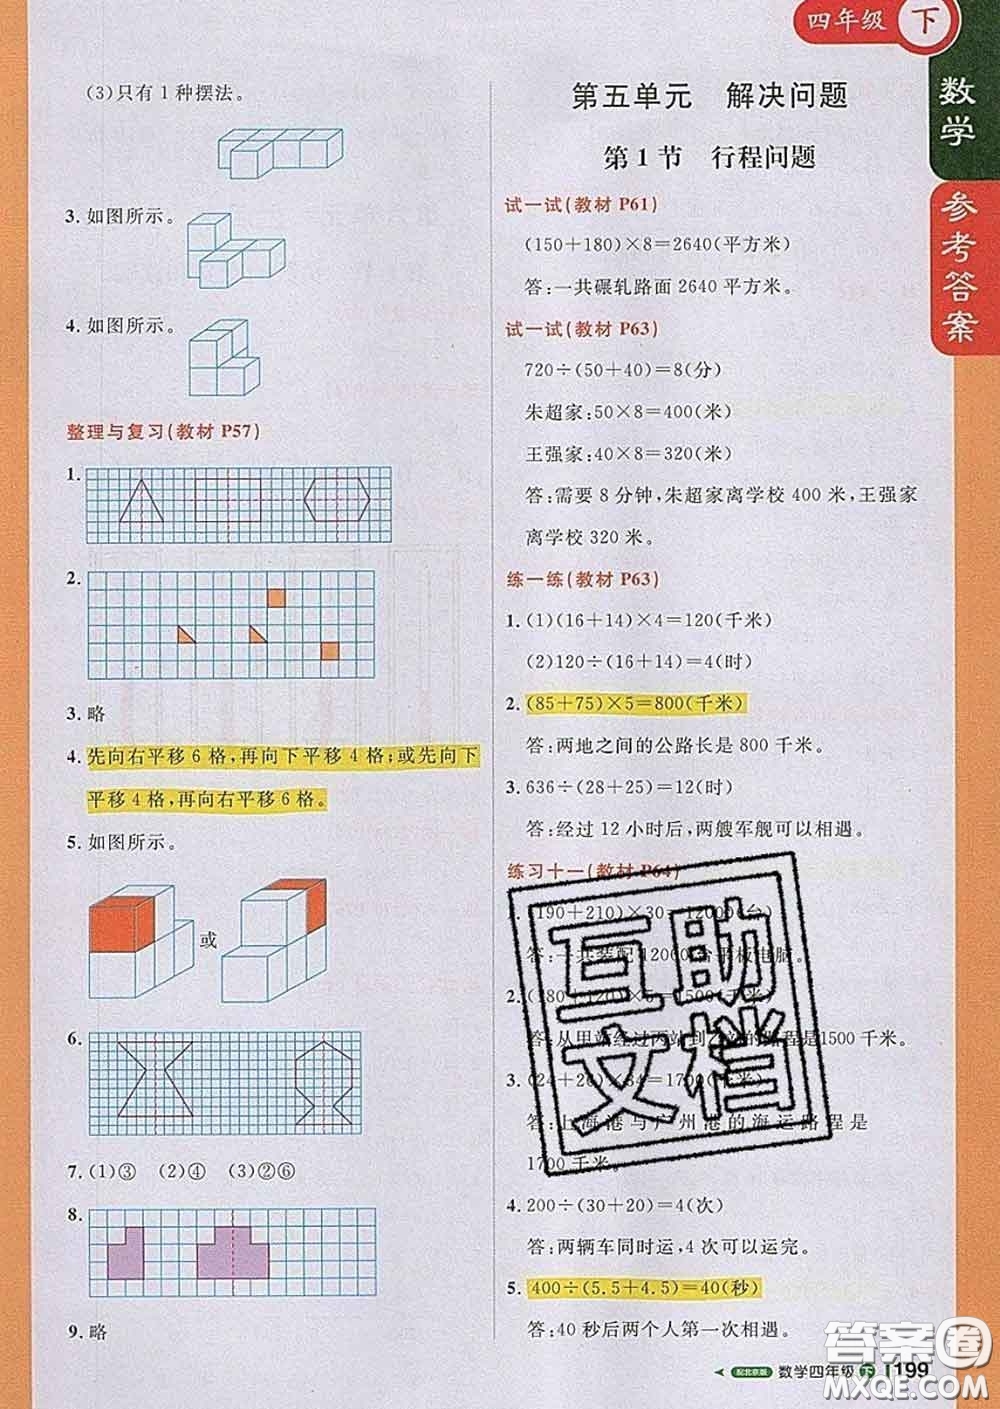 四年级 下
数学
参考答案
(3)只有1种摆法。
3. 如图所示。
4. 如图所示。
整理与复习(教材 P57)
1.
2.
3. 略
4. 先向右平移6格,再向下平移4格;或先向下
平移4格,再向右平移6格。
5. 如图所示。
或
6.
7. (1)③ (2)④ (3)②⑥
8.
9. 略
第五单元 解决问题
第1节 行程问题
试一试(教材 P61)
(150+180)×8=2640(平方米)
答:一共碾轧路面2640平方米。
试一试(教材 P63)
720÷(50+40)=8(分)
朱超家:50×8=400(米)
王强家:40×8=320(米)
答:需要8分钟,朱超家离学校400米,王强家
离学校320米。
练一练(教材 P63)
1. (1)(16+14)×4=120(千米)
(2)120÷(16+14)=4(时)
2. (85+75)×5=800(千米)
答:两地之间的公路长是800千米。
3. 636÷(28+25)=12(时)
答:经过12小时后,两艘军舰可以相遇。
练习十一(教材 P64)
1. (190+210)×30=12000(台)
答:一共装配12000台平板电脑。
2. (180+120)×5=1500(千米)
答:从甲站经过丙站到乙站的路程是1500千米。
3. (24+26)×34=1700(千米)
答:上海港与广州港的海运路程是
1700千米。
4. 200÷(30+20)=4(次)
答:两辆车同时运,4次可以运完。
5. 400÷(5.5+4.5)=40(秒)
答:40秒后两个人第一次相遇。
互助
文档
配北京版 数学四年级 下 199
答案圈
MXQE.COM